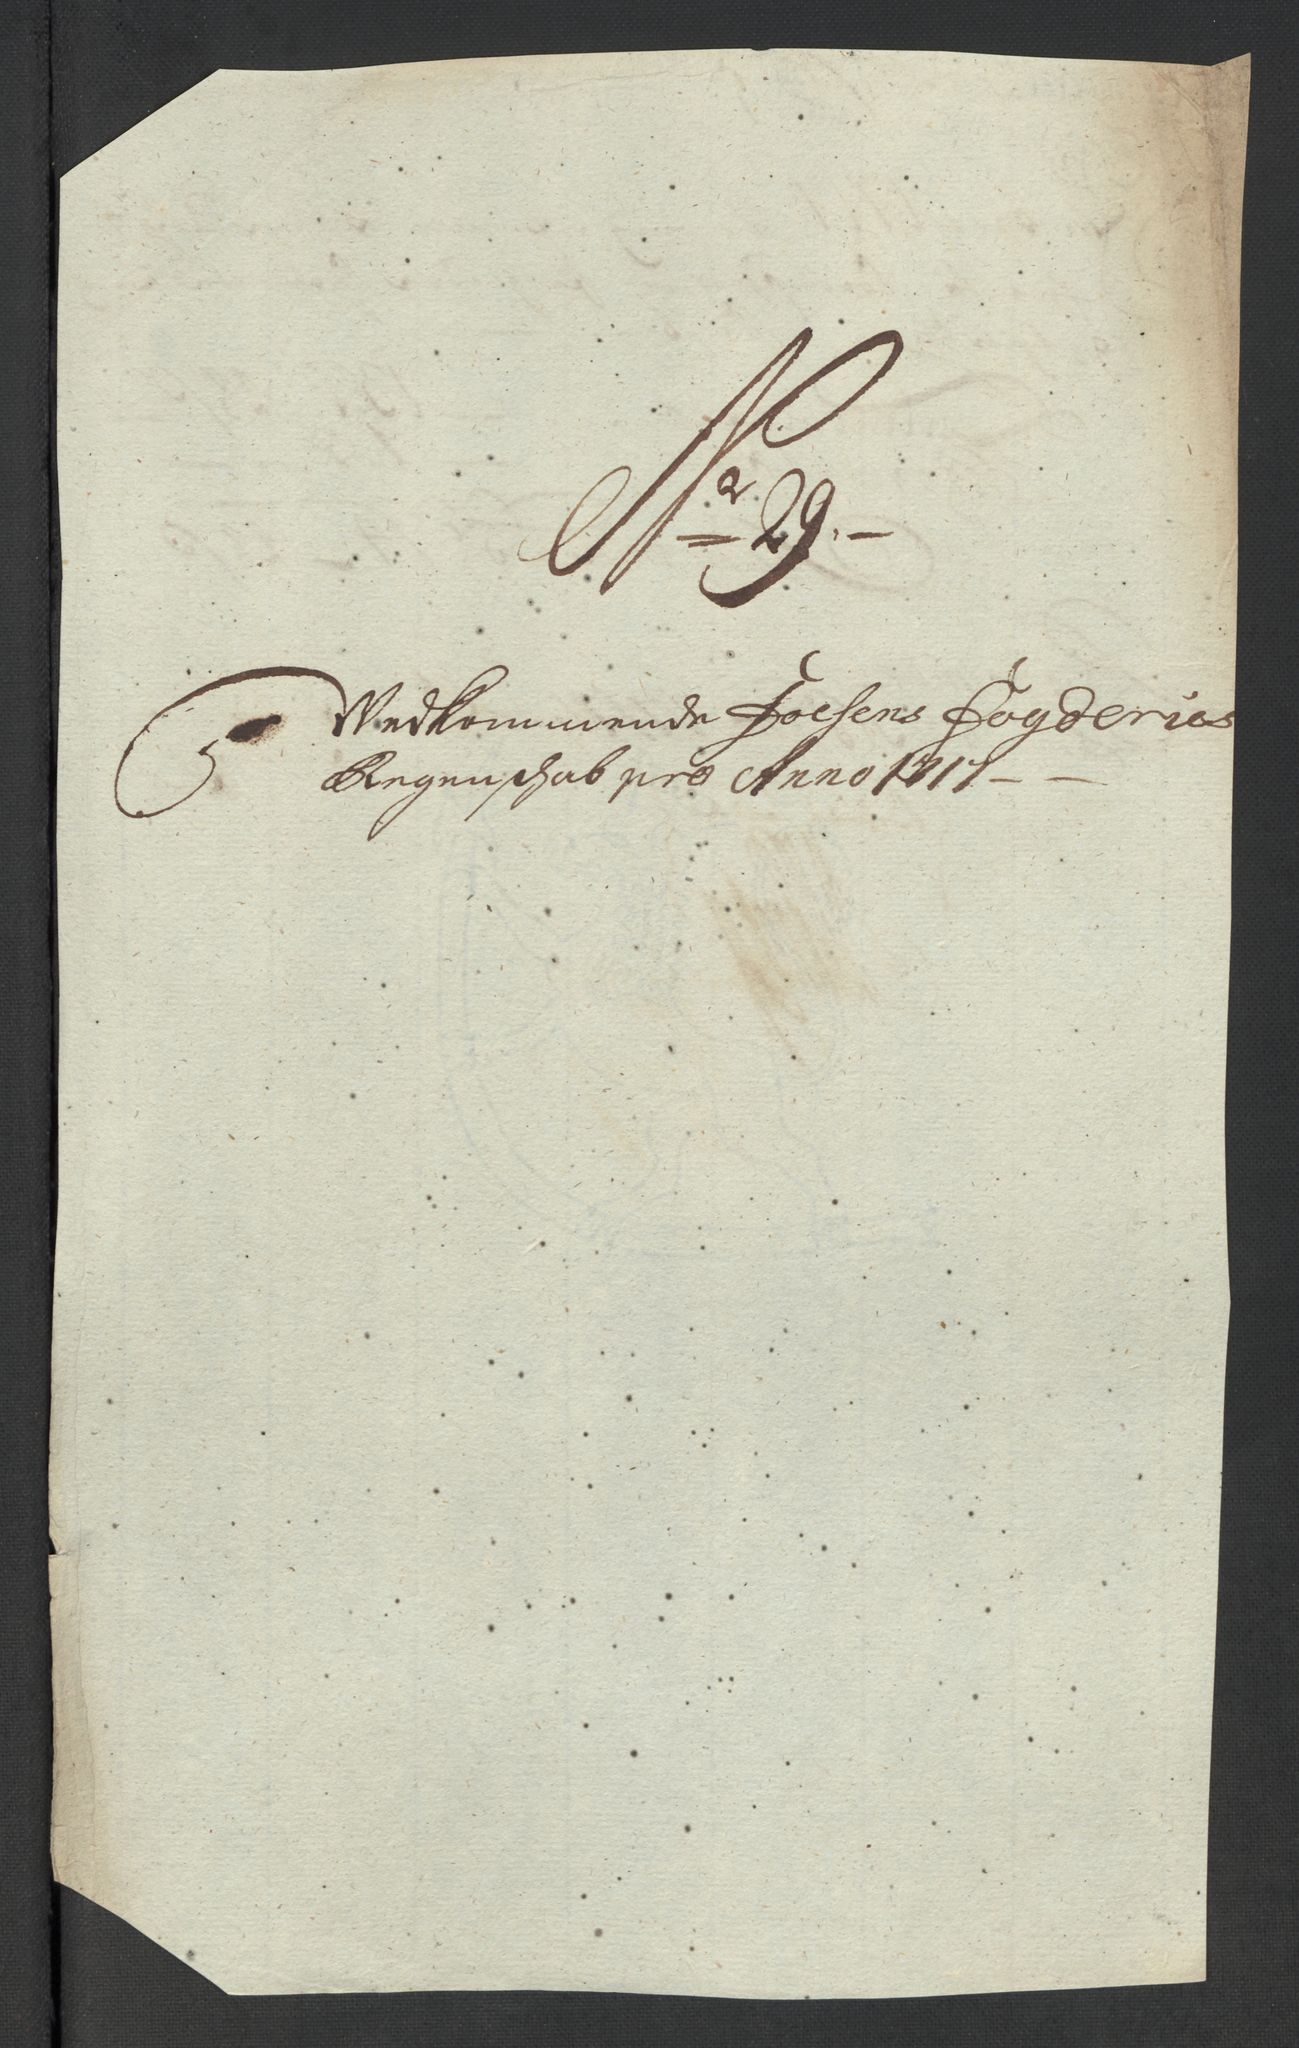 No 29.
Vedkommende Foesens Fogderies
Regenschab pro Anno 1717